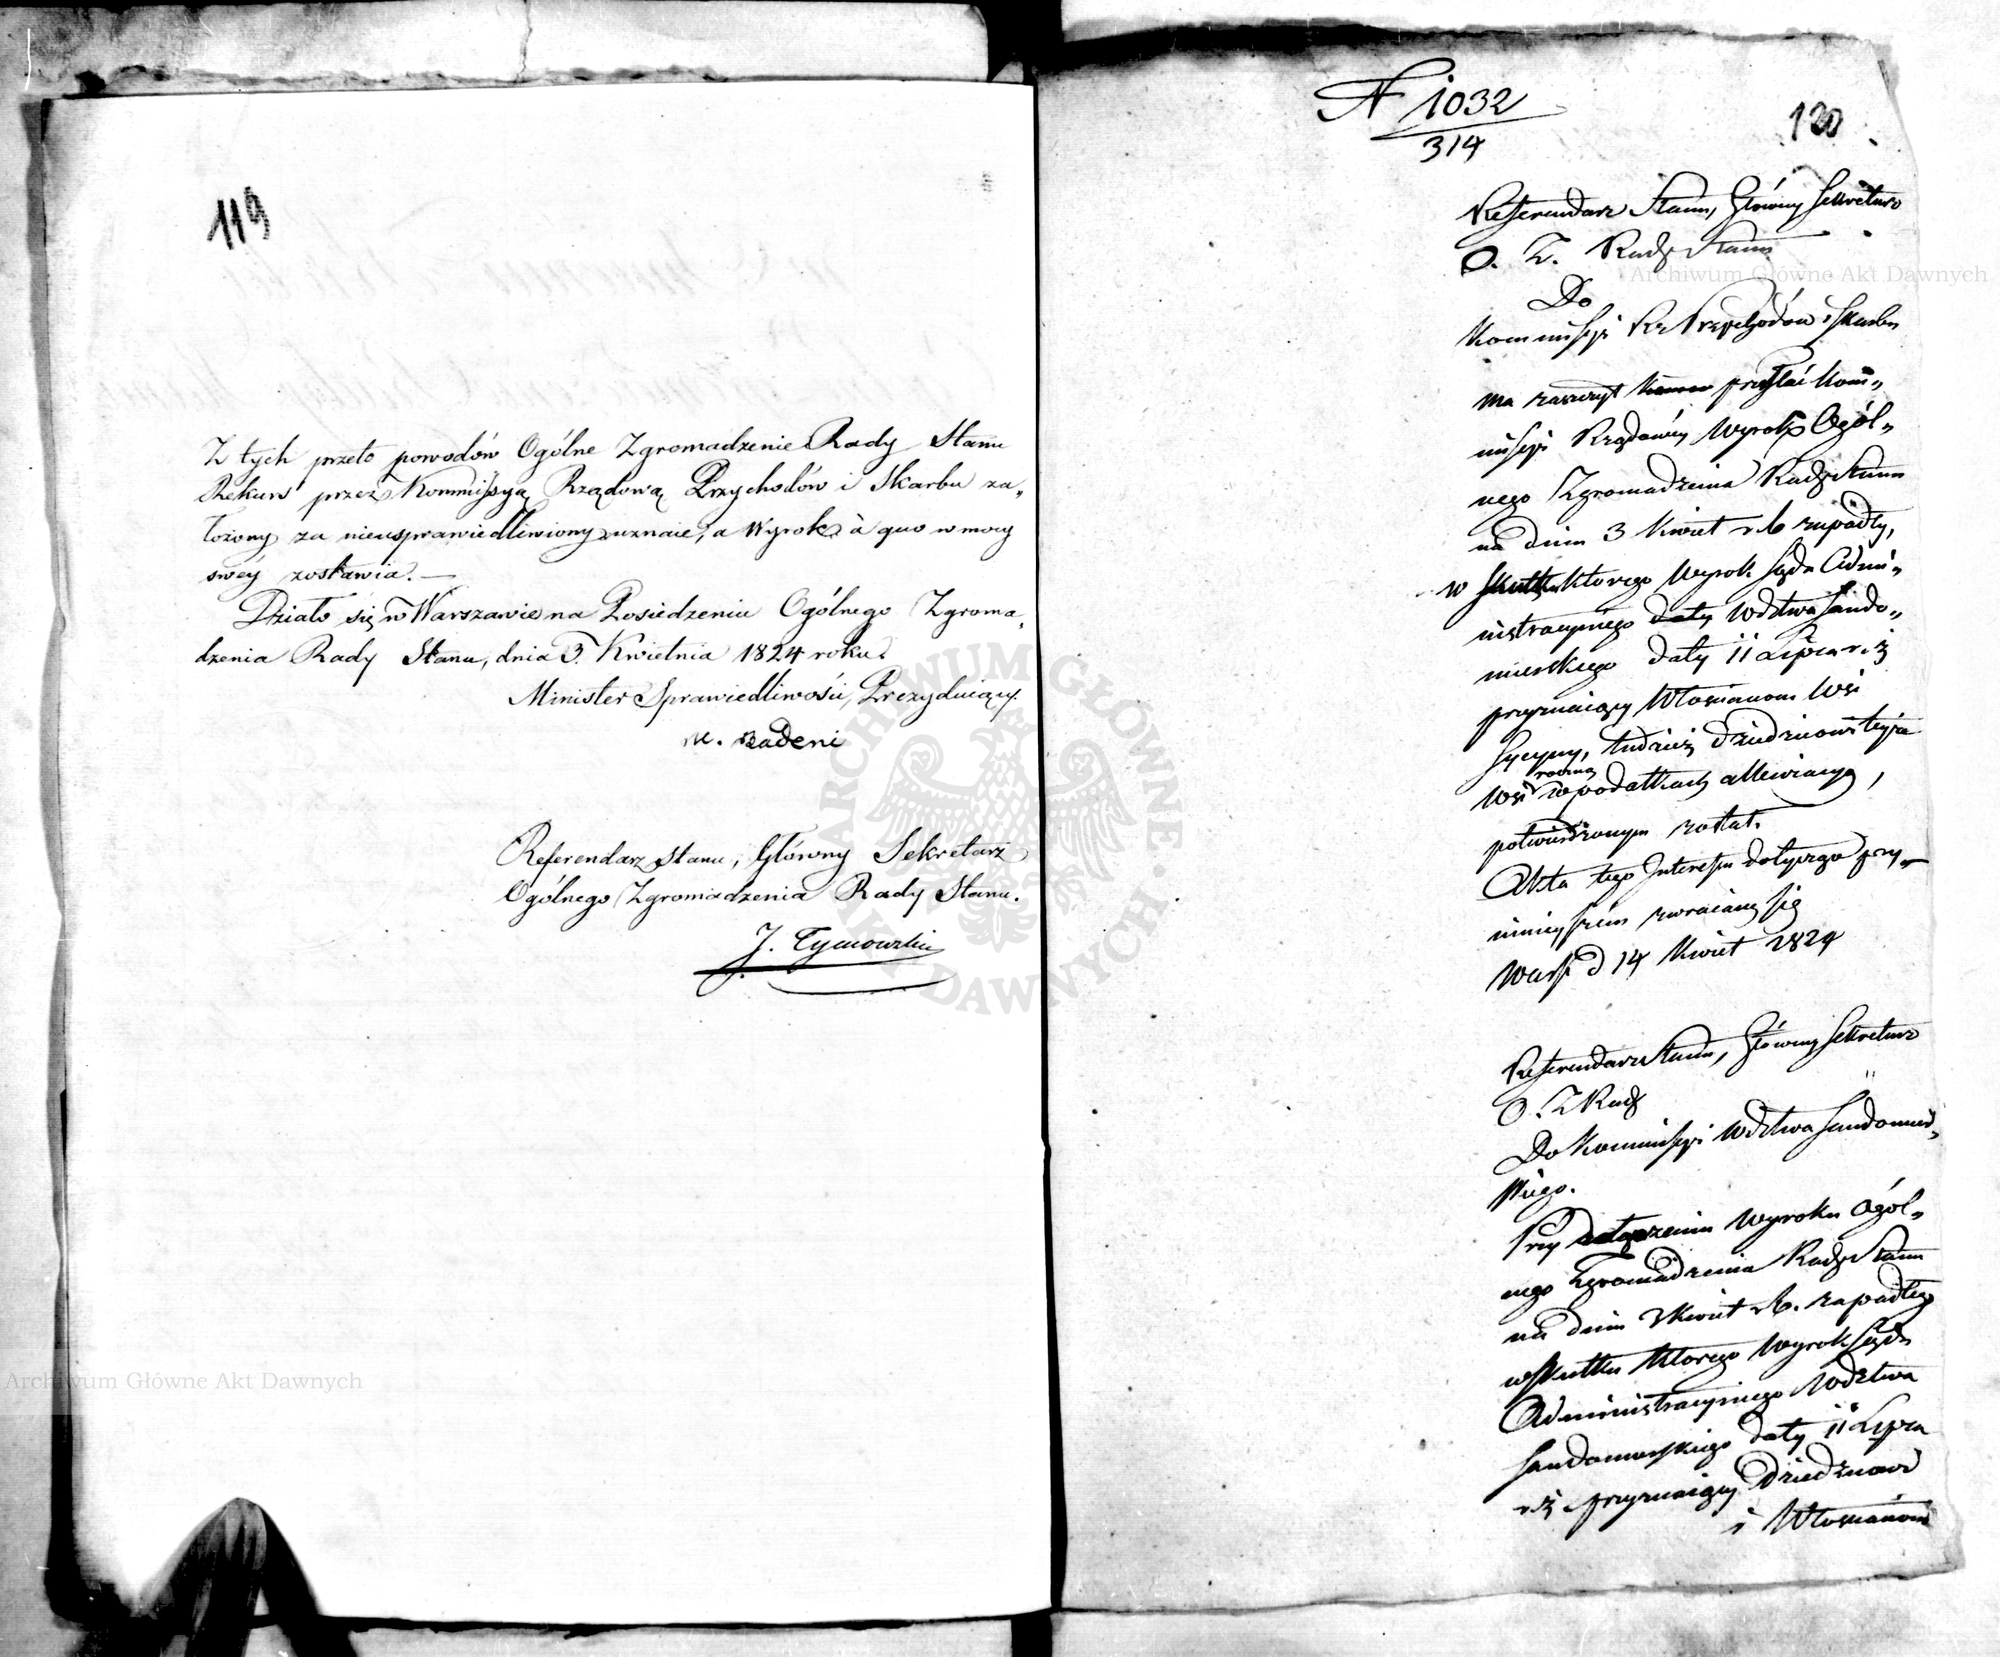 119
Z tych przeto powodów Ogólne Zgromadzenie Rady Stanu
Rekurs przez Kommissyą Rządową Przychodów i Skarbu za„
łożony za nieusprawiedliwiony uznaie, a Wyrok à quo w mocy
swéy zostawia. —
Działo się w Warszawie na Posiedzeniu Ogólnego Zgroma„
dzenia Rady Stanu, dnia 3. Kwietnia 1824 roku.
Minister Sprawiedliwości, Prezyduiący.
M. Badeni
Referendarz Stanu, Główny Sekretarz
Ogólnego Zgromadzenia Rady Stanu.
J. Tymowski
N 1032
314
120
Referendarz Stanu, Główny Sekretarz
O. Z. Rady Stanu
Do
Kommissyi Rz Przychodów i Skarbu
ma zaszczyt przesłać Kom„
missyi Rządowéy Wyrok Ogól„
nego Zgromadzenia Rady Stanu
na dniu 3 Kwiet r. b. zapadły,
w skutku którego Wyrok Sądu Admi„
nistracyinego Wdztwa Sando„
mirskiego daty 11 Lipca r. z
przyznaiący Włościanom Wsi
Sycyny, tudzież Dziedzicowi teyże
Wsi roczną w podatkach allewiacyą,
potwierdzonym został.
Akta tego Interessu dotyczące przy„
ninieyszém zwracaią się
Warsz d 14 Kwiet 1824
Referendarz Stanu, Główny Sekretarz
O. Z Rady
Do Kommissyi Wdztwa Sandomir„
skiego.
Przy dołączeniu Wyroku Ogól„
nego Zgromadzenia Rady Stanu
na dniu 3 Kwiet r. b. zapadłego
w skutku którego Wyrok Sądu
Administracyinego Wdztwa
Sandomirskiego daty 11 Lipca
r. z przyznaiący Dziedzicowi
i Włościanom
Archiwum Główne Akt Dawnych
Archiwum Główne Akt Dawnych
ARCHIWUM GŁÓWNE AKT DAWNYCH